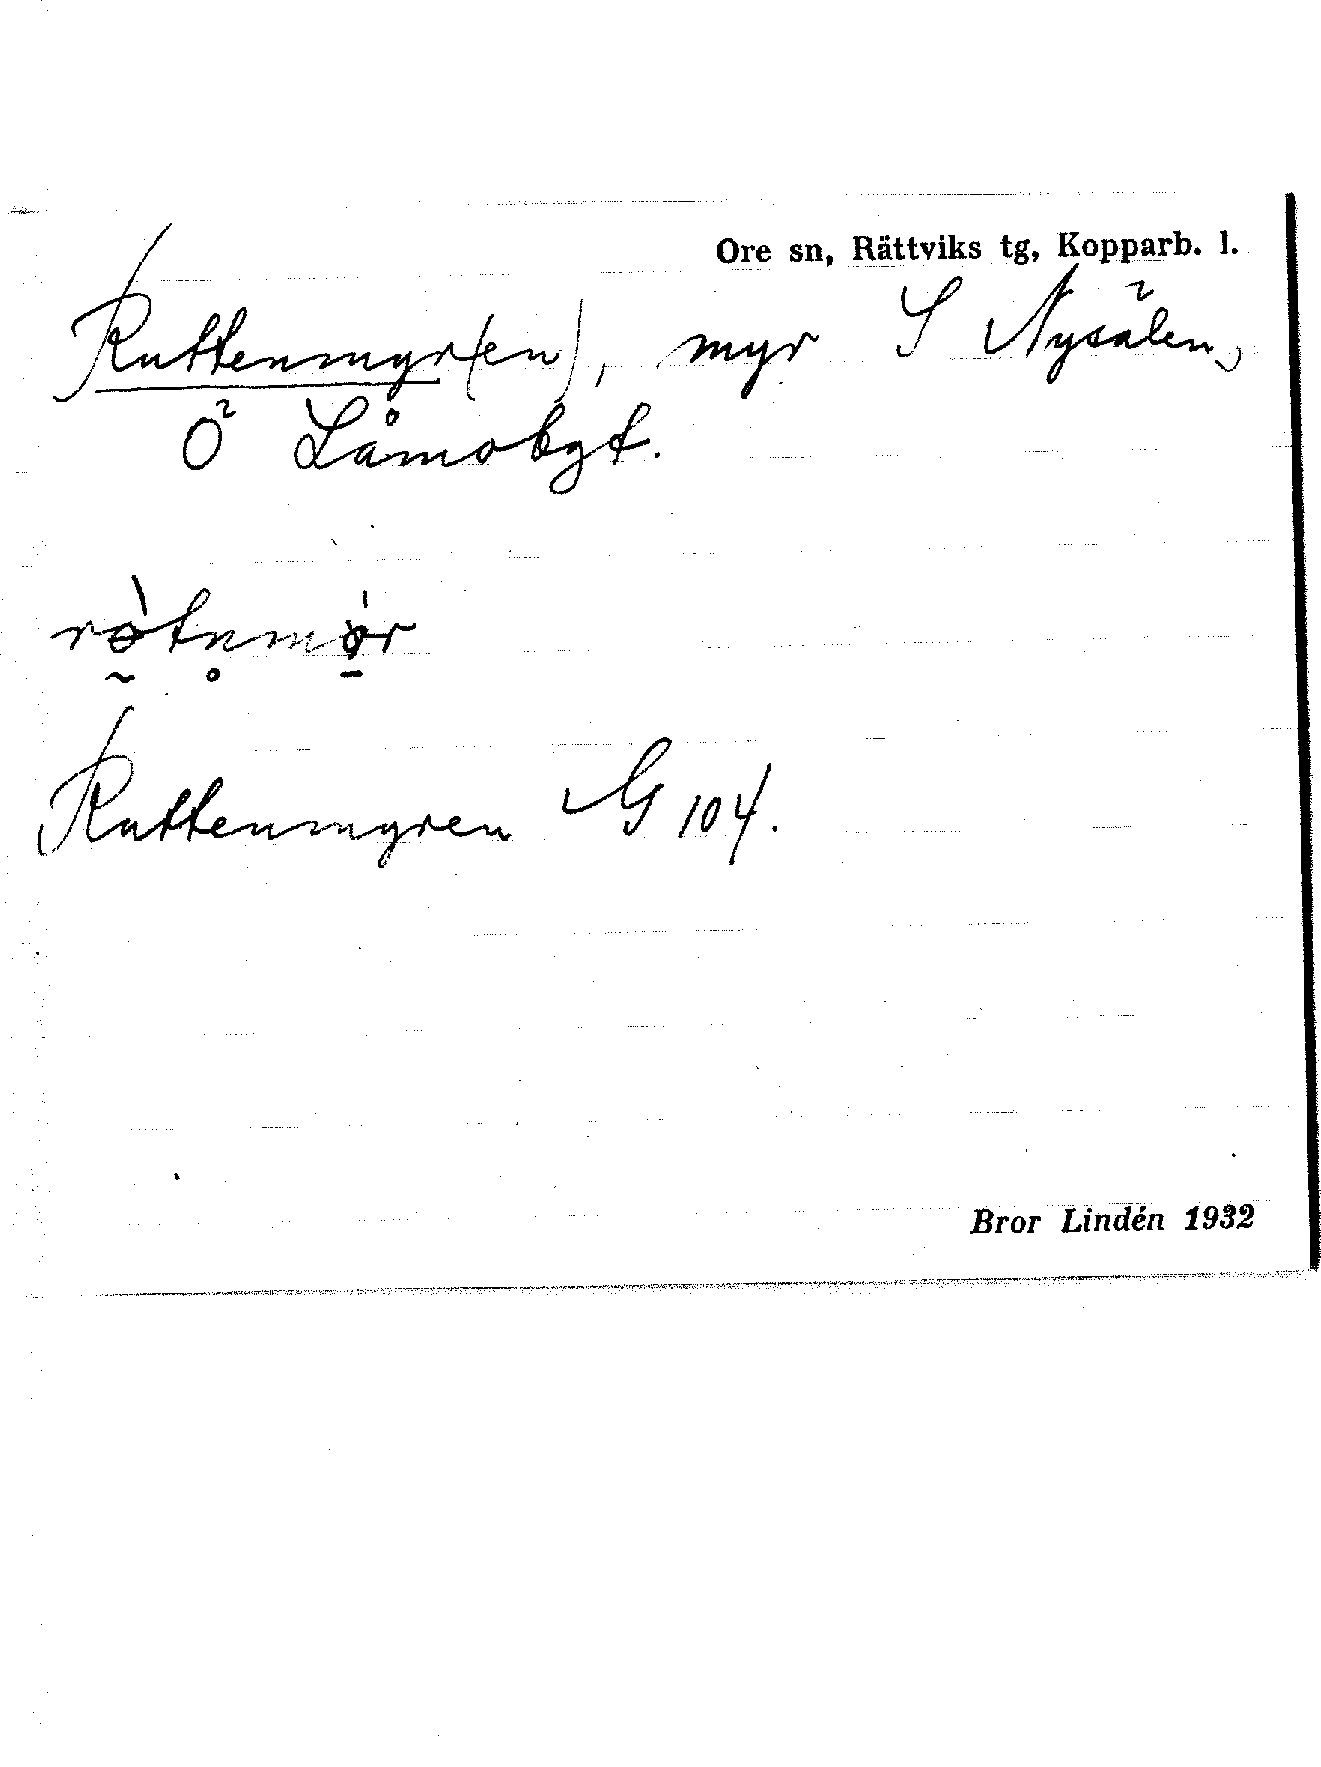 Ore sn, Rättviks tg, Kopparb. l.
Ruttenmyr(en), myr S Nysälen,
Ö Låmobgt.
Ruttenmyren G 104.
Bror Lindén 1932